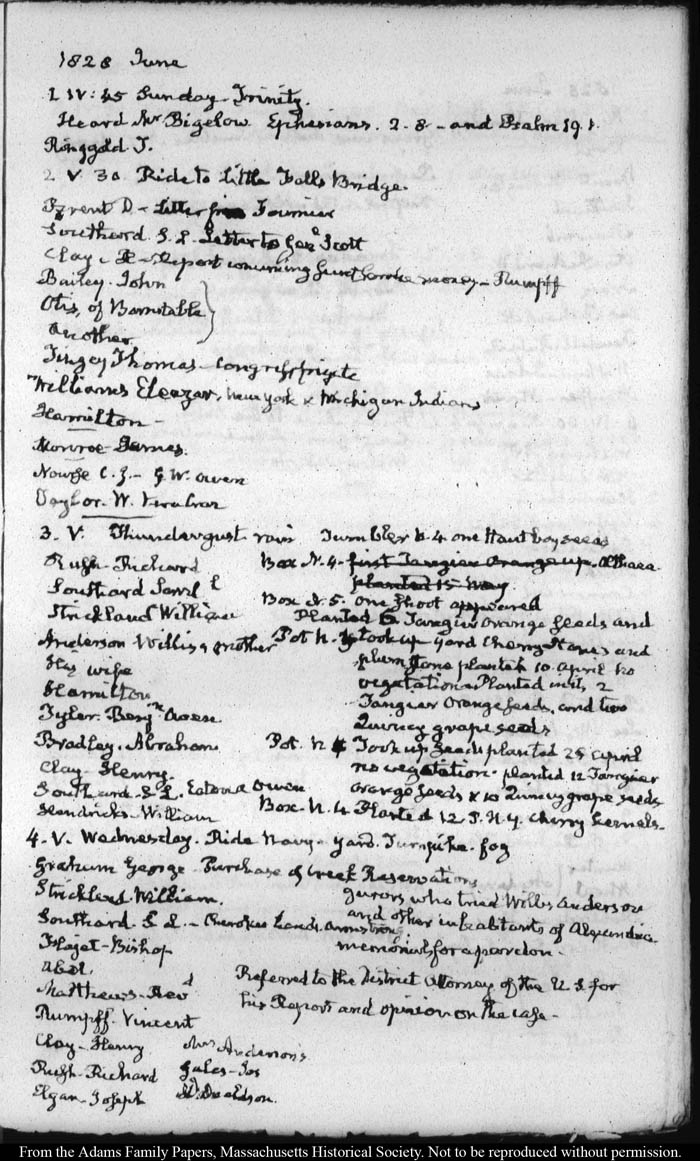 1828 June
1 IV:45 Sunday-Trinity.
Heard Mr Bigelow Ephesians. 2-8- and Psalm 19.1.
Ringgold T.
2 V. 30 Ride to Little Falls Bridge.
Brent D- Letter from Fournier
Southard. S. L. Letter to Genl Scott
Clay- H- Report concerning money- Rumpff
Bailey- John
Otis, of Barnstable
another
Tingey Thomas- Congress frigate
Williams Eleazar, New York & Michigan Indians
Hamilton-
Monroe- James.
Nourse C. J.- G W. Owen
Taylor. W.
3. V. Thundergust rain Tumbler N. 4 one Hautboy seeds
Rush- Richard Box N. 4- first Tangier Orange up. Althaea
Southard Saml L planted 15 May.
Strickland William Box N. 5. one shoot appeared
Planted 6 Tangier Orange seeds and
Anderson Willis's mother Pot N. took up yard Cherry stones and
His wife plum stone planted 10. April no
Hamilton vegetation. Planted in it, 2
Tyler. Benjn Owen Tangier Orange seeds, and two
Quincy grape seeds
Bradley. Abraham Pot. N 4 Took up seeds planted 25 April
Clay- Henry. no vegetation. planted 12 Tangier
Southard- S. L. Eaton & Owen Orange seeds & 10 Quincy grape seeds
Hendricks- William Box. N. 4 Planted 12 P. N. Y. Cherry kernels-
4. V. Wednesday. Ride Navy-yard. Turnpike. fog
Graham George- Purchase of Creek Reservations
Strickland William. Jurors who tried Willis Anderson
Southard. S L.- Cherokee Lands. Armstrong and other inhabitants of Alexandria
Flaget- Bishop memorial for a pardon-
Abel.
Matthews- Revd Referred to the District Attorney of the U. S. for
his Report and opinion on the case-
Rumpff- Vincent
Clay- Henry Mrs Anderson's
Rush- Richard Gales- Jos
Elgar- Joseph Davidson.
From the Adams Family Papers, Massachusetts Historical Society. Not to be reproduced without permission.